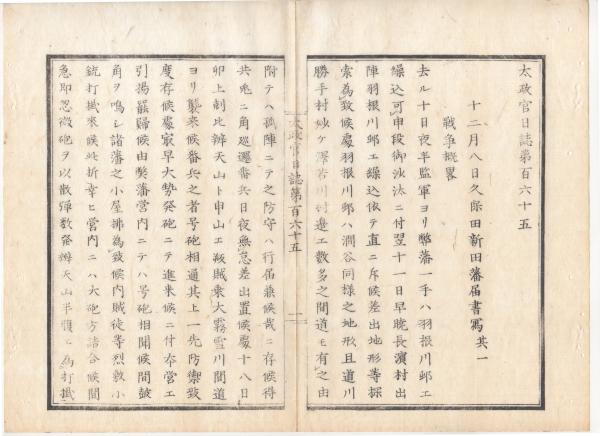 太政官日誌第百六十五
十二月八日久保田新田藩届書寫其一
戰爭概畧
去ル十日夜半監軍ヨリ弊藩一手ハ羽根川邨エ
繰込可申段御沙汰ニ付翌十一日早曉長濱村出
陣羽根川邨エ繰込依テ直ニ斥候差出地形等探
索為致候處羽根川邨ハ澗谷同樣之地形且道川
勝手村妙ケ澤君川村邊エ數多之間道モ有之由
太政官日誌第百六十五
一
附テハ孤陣ニテ之防守ハ行届兼候哉ニ存候得
共兎ニ角巡邏番兵日夜無怠差出置候處十八日
卯上刻比辨天山ト申山エ叛賊衆大霧雪川間道
ヨリ襲来候番兵之者号砲相通其上一先防禦致
度存候處最早大勢発砲ニテ進来候ニ付本營エ
引揚羅歸候由弊藩營内ニテハ号砲相聞候間鼓
角ヲ鳴シ諸藩之小屋拂為致候内賊徒等烈敷小
銃打掛来候此折幸ヒ營内ニハ大砲方諸合候間
急即忽微砲ヲ以散彈數発辨天山半腹エ為打掛